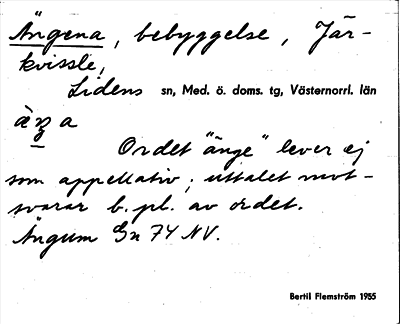 Ängena, bebyggelse, Jär-
kvissle,
Lidens sn, Med. ö. doms. tg, Västernorrl. län
Ordet "änge" lever ej
som appellativ; uttalet mot-
svarar b. pl. av ordet.
Ängum Gn 74 NV.
Bertil Flemström 1955